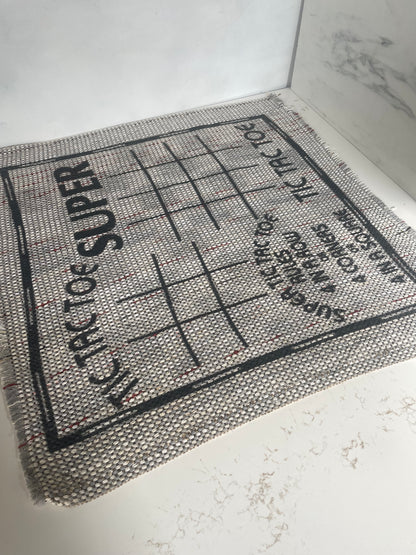 TIC TAC TOE
SUPER
TIC TAC TOE
SUPER TIC TAC TOE
RULES:
4 IN A ROW
4 CORNERS
4 IN A SQUARE